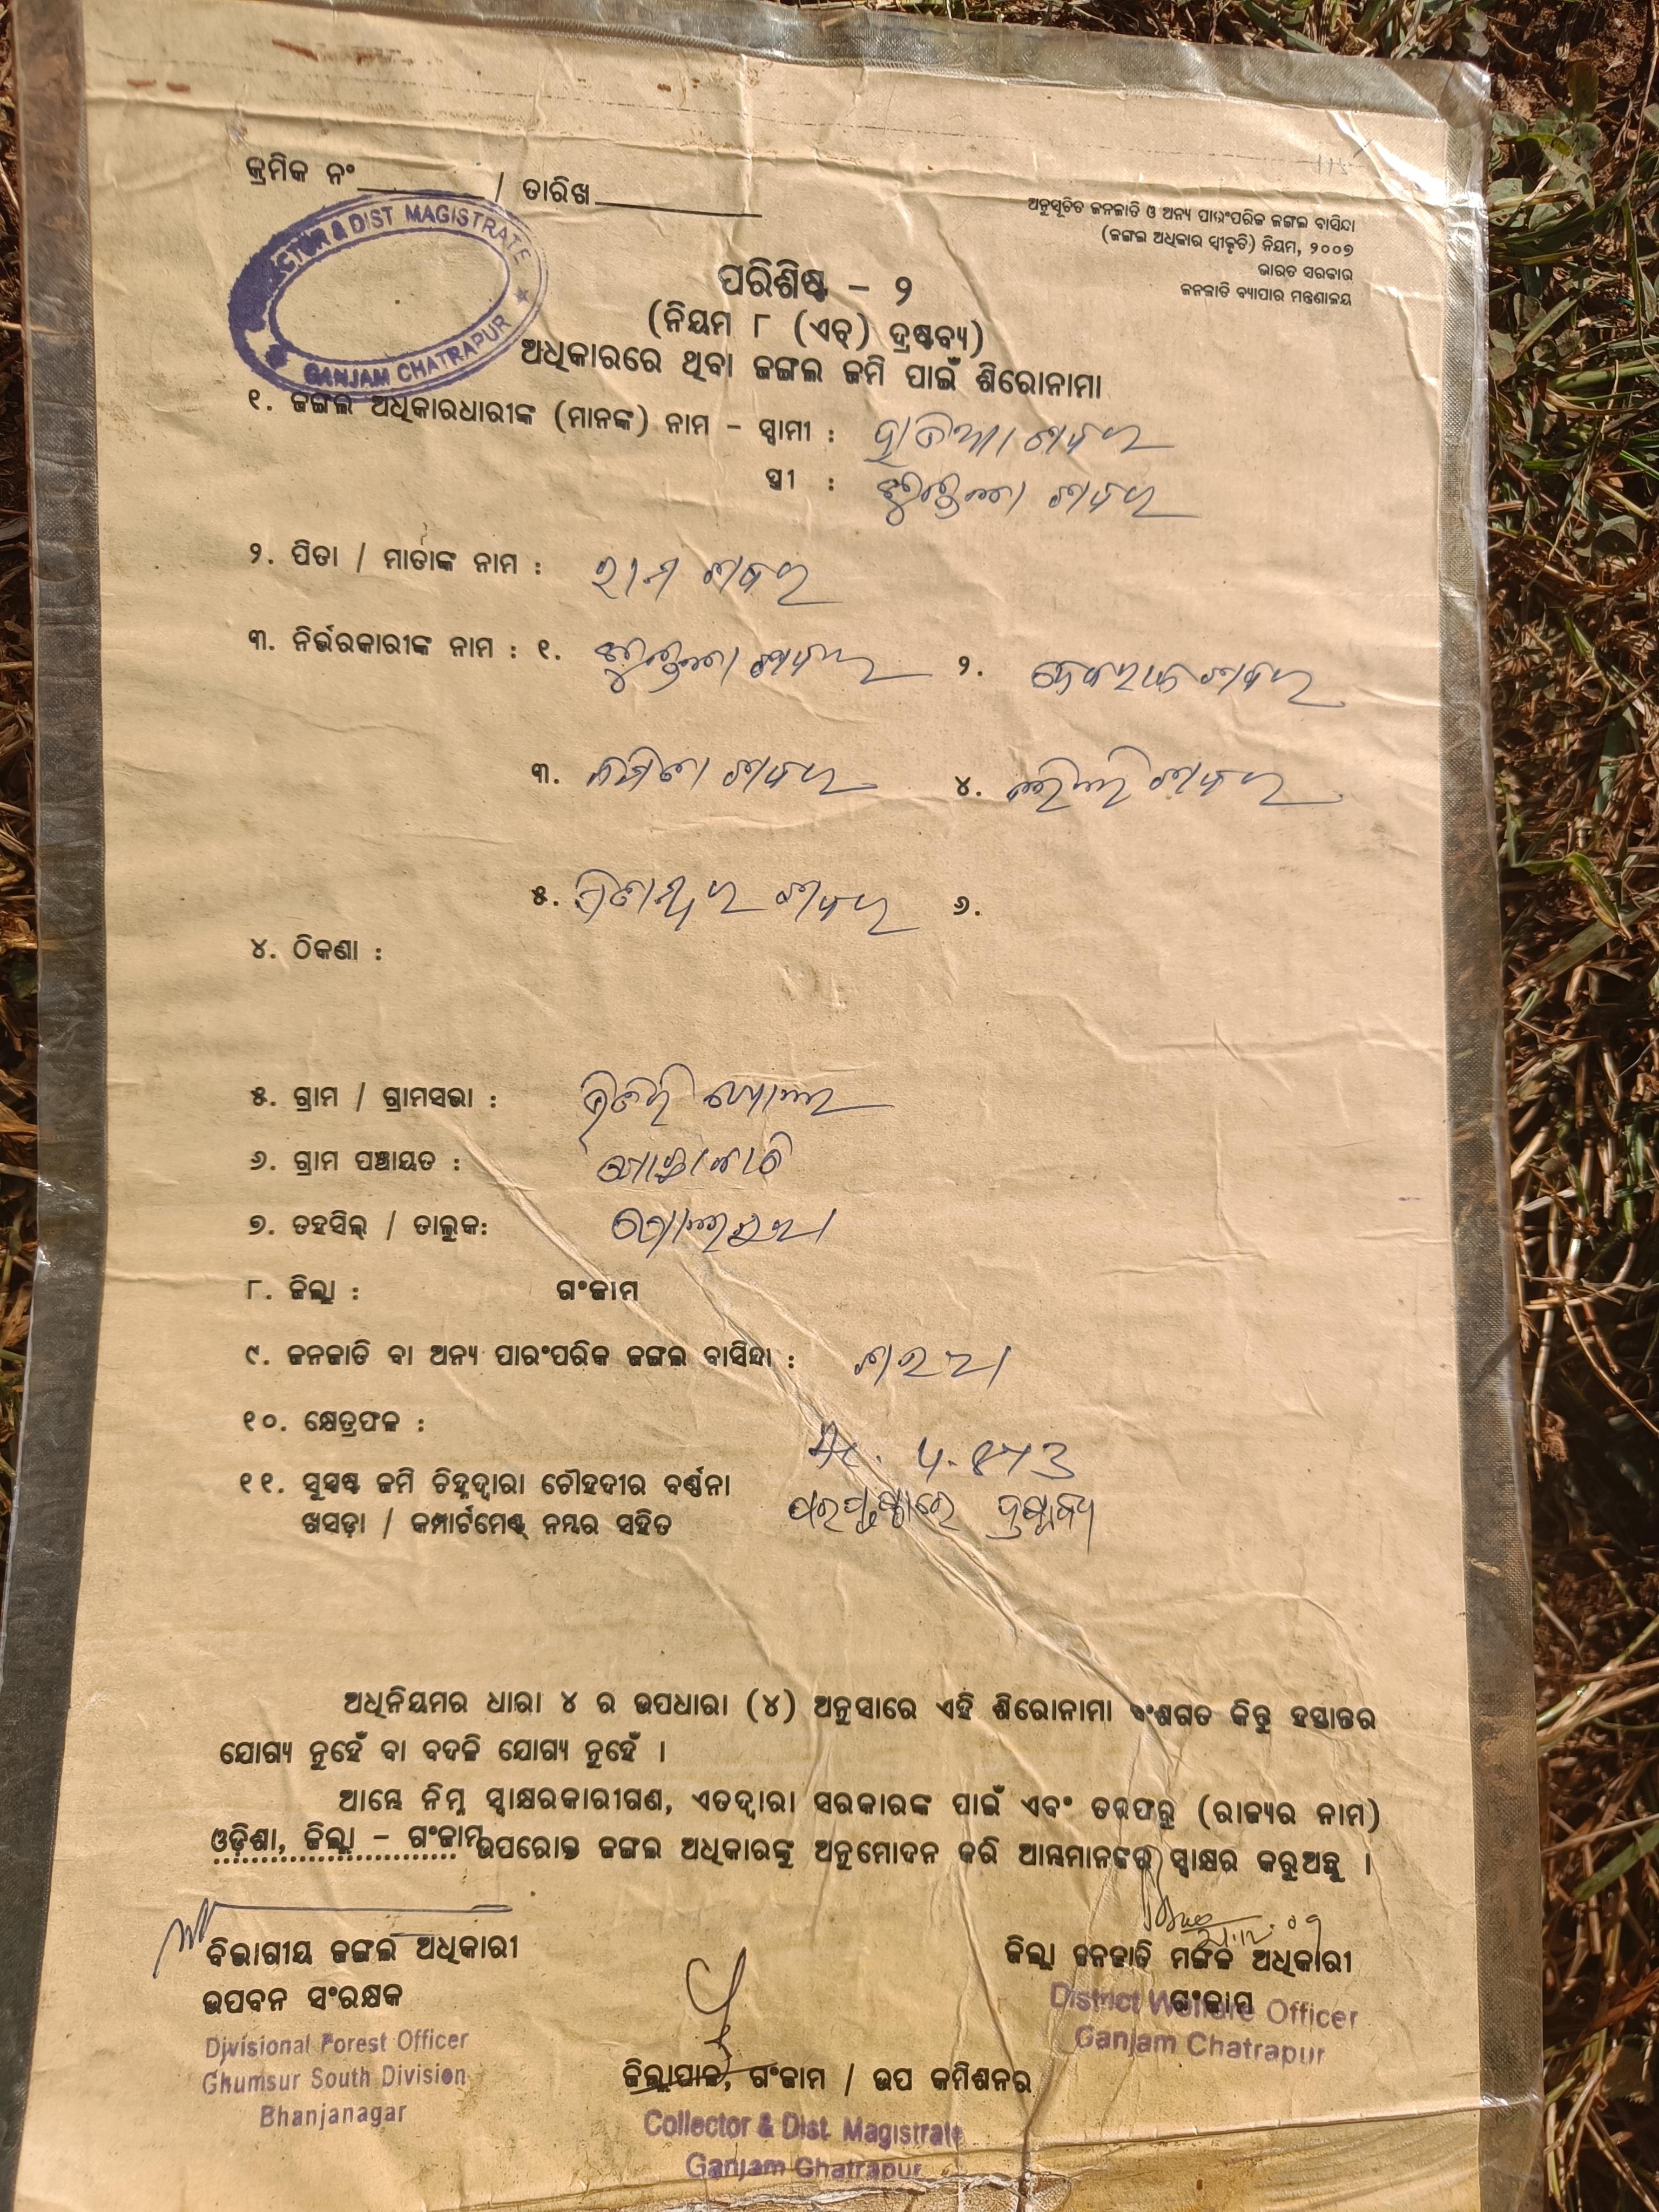 କ୍ରମିକ ନଂ / ତାରିଖ
COLLECTOR & DIST MAGISTRATE
GANJAM CHATRAPUR
ଅନୁସୂଚିତ ଜନଜାତି ଓ ଅନ୍ୟ ପାରଂପରିକ ଜଙ୍ଗଲ ବାସିନ୍ଦା
(ଜଙ୍ଗଲ ଅଧିକାର ସ୍ୱୀକୃତି) ନିୟମ, ୨୦୦୭
ଭାରତ ସରକାର
ଜନଜାତି ବ୍ୟାପାର ମନ୍ତ୍ରଣାଳୟ
ପରିଶିଷ୍ଟ – ୨
(ନିୟମ ୮ (ଏଚ୍) ଦ୍ରଷ୍ଟବ୍ୟ)
ଅଧିକାରରେ ଥିବା ଜଙ୍ଗଲ ଜମି ପାଇଁ ଶିରୋନାମା
୧. ଜଙ୍ଗଲ ଅଧିକାରଧାରୀଙ୍କ (ମାନଙ୍କ) ନାମ – ସ୍ୱାମୀ : ଶବର
ସ୍ତ୍ରୀ : ଶବର
୨. ପିତା / ମାତାଙ୍କ ନାମ : ରାମ ଶବର
୩. ନିର୍ଭରକାରୀଙ୍କ ନାମ : ୧. ଶବର ୨. ଶବର
୩. ଶବର ୪. ଶବର
୫. ଶବର ୬.
୪. ଠିକଣା :
୫. ଗ୍ରାମ / ଗ୍ରାମସଭା :
୬. ଗ୍ରାମ ପଞ୍ଚାୟତ :
୭. ତହସିଲ୍ / ତାଲୁକ:
୮. ଜିଲ୍ଲା : ଗଂଜାମ
୯. ଜନଜାତି ବା ଅନ୍ୟ ପାରଂପରିକ ଜଙ୍ଗଲ ବାସିନ୍ଦା :
୧୦. କ୍ଷେତ୍ରଫଳ : Ac. 4.873
୧୧. ସୁସ୍ପଷ୍ଟ ଜମି ଚିହ୍ନଦ୍ୱାରା ଚୌହଦୀର ବର୍ଣ୍ଣନା
ଖସଡ଼ା / କମ୍ପାର୍ଟମେଣ୍ଟ୍ ନମ୍ଭର ସହିତ ପରପୃଷ୍ଠାରେ ଦ୍ରଷ୍ଟବ୍ୟ
ଅଧିନିୟମର ଧାରା ୪ ର ଉପଧାରା (୪) ଅନୁସାରେ ଏହି ଶିରୋନାମା ବଂଶଗତ କିନ୍ତୁ ହସ୍ତାନ୍ତର
ଯୋଗ୍ୟ ନୁହେଁ ବା ବଦଳି ଯୋଗ୍ୟ ନୁହେଁ ।
ଆମ୍ଭେ ନିମ୍ନ ସ୍ୱାକ୍ଷରକାରୀଗଣ, ଏତଦ୍ୱାରା ସରକାରଙ୍କ ପାଇଁ ଏବଂ ତରଫରୁ (ରାଜ୍ୟର ନାମ)
ଓଡ଼ିଶା, ଜିଲ୍ଲା – ଗଂଜାମ ଉପରୋକ୍ତ ଜଙ୍ଗଲ ଅଧିକାରଙ୍କୁ ଅନୁମୋଦନ କରି ଆମ୍ଭମାନଙ୍କର ସ୍ୱାକ୍ଷର କରୁଅଛୁ ।
ବିଭାଗୀୟ ଜଙ୍ଗଲ ଅଧିକାରୀ
ଉପବନ ସଂରକ୍ଷକ
Divisional Forest Officer
Ghumsur South Division
Bhanjanagar
ଜିଲ୍ଲାପାଳ, ଗଂଜାମ / ଉପ କମିଶନର
Collector & Dist. Magistrate
Ganjam Chatrapur
ଜିଲ୍ଲା ଜନଜାତି ମଙ୍ଗଳ ଅଧିକାରୀ
ଗଂଜାମ
District Welfare Officer
Ganjam Chatrapur